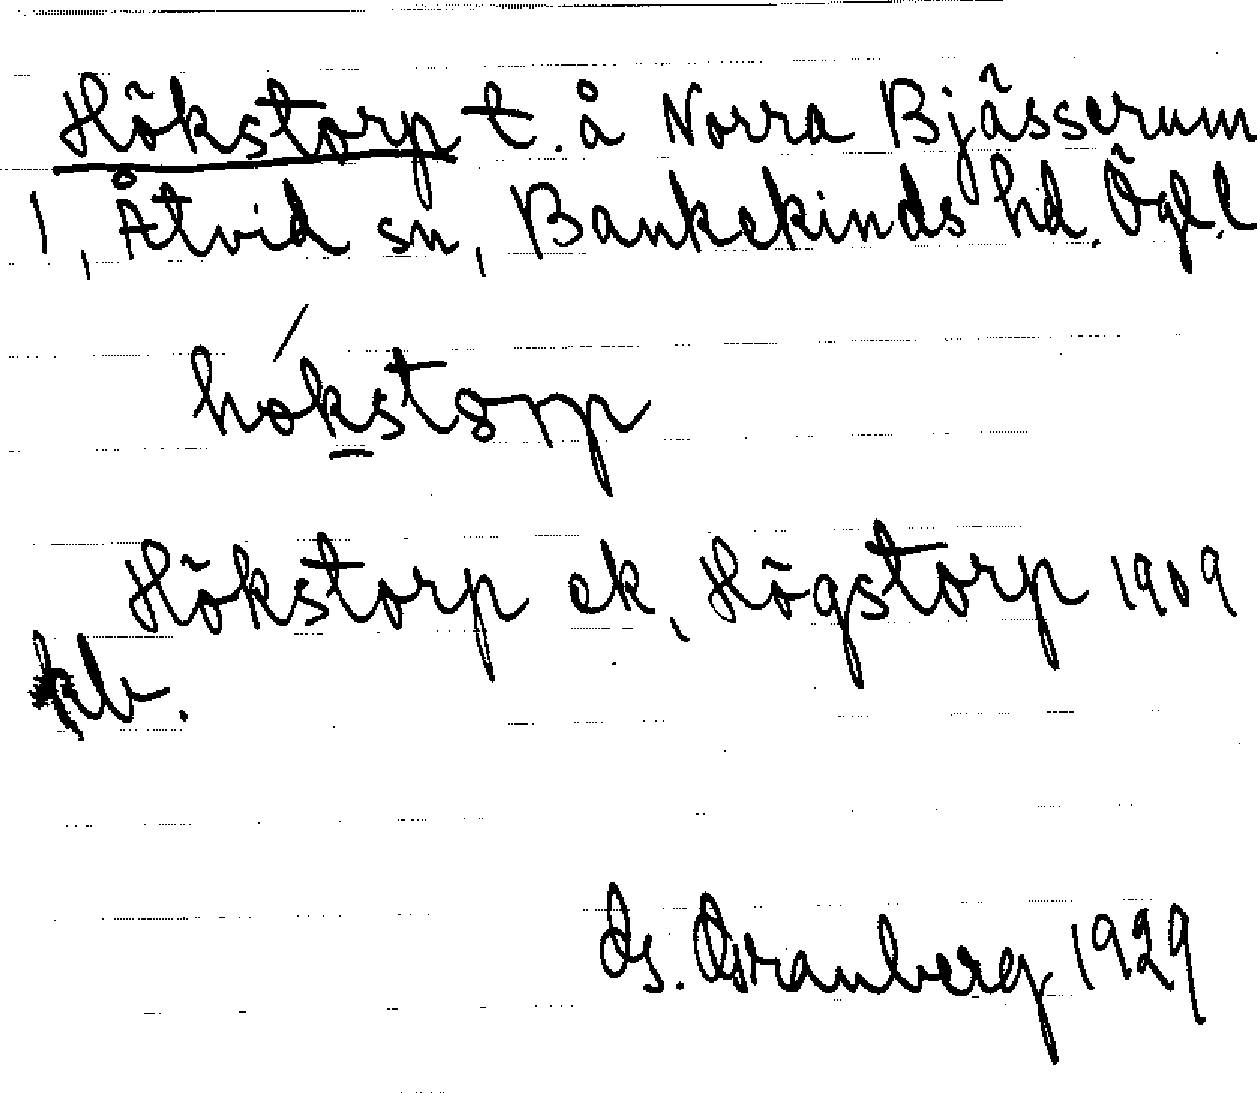 Hökstorp t. å Norra Bjässerum
1, Åtvid sn, Bankekinds hd. Ögl.
hókstorp
Hökstorp ek, Högstorp 1909
kb.
Gs. Granberg 1929